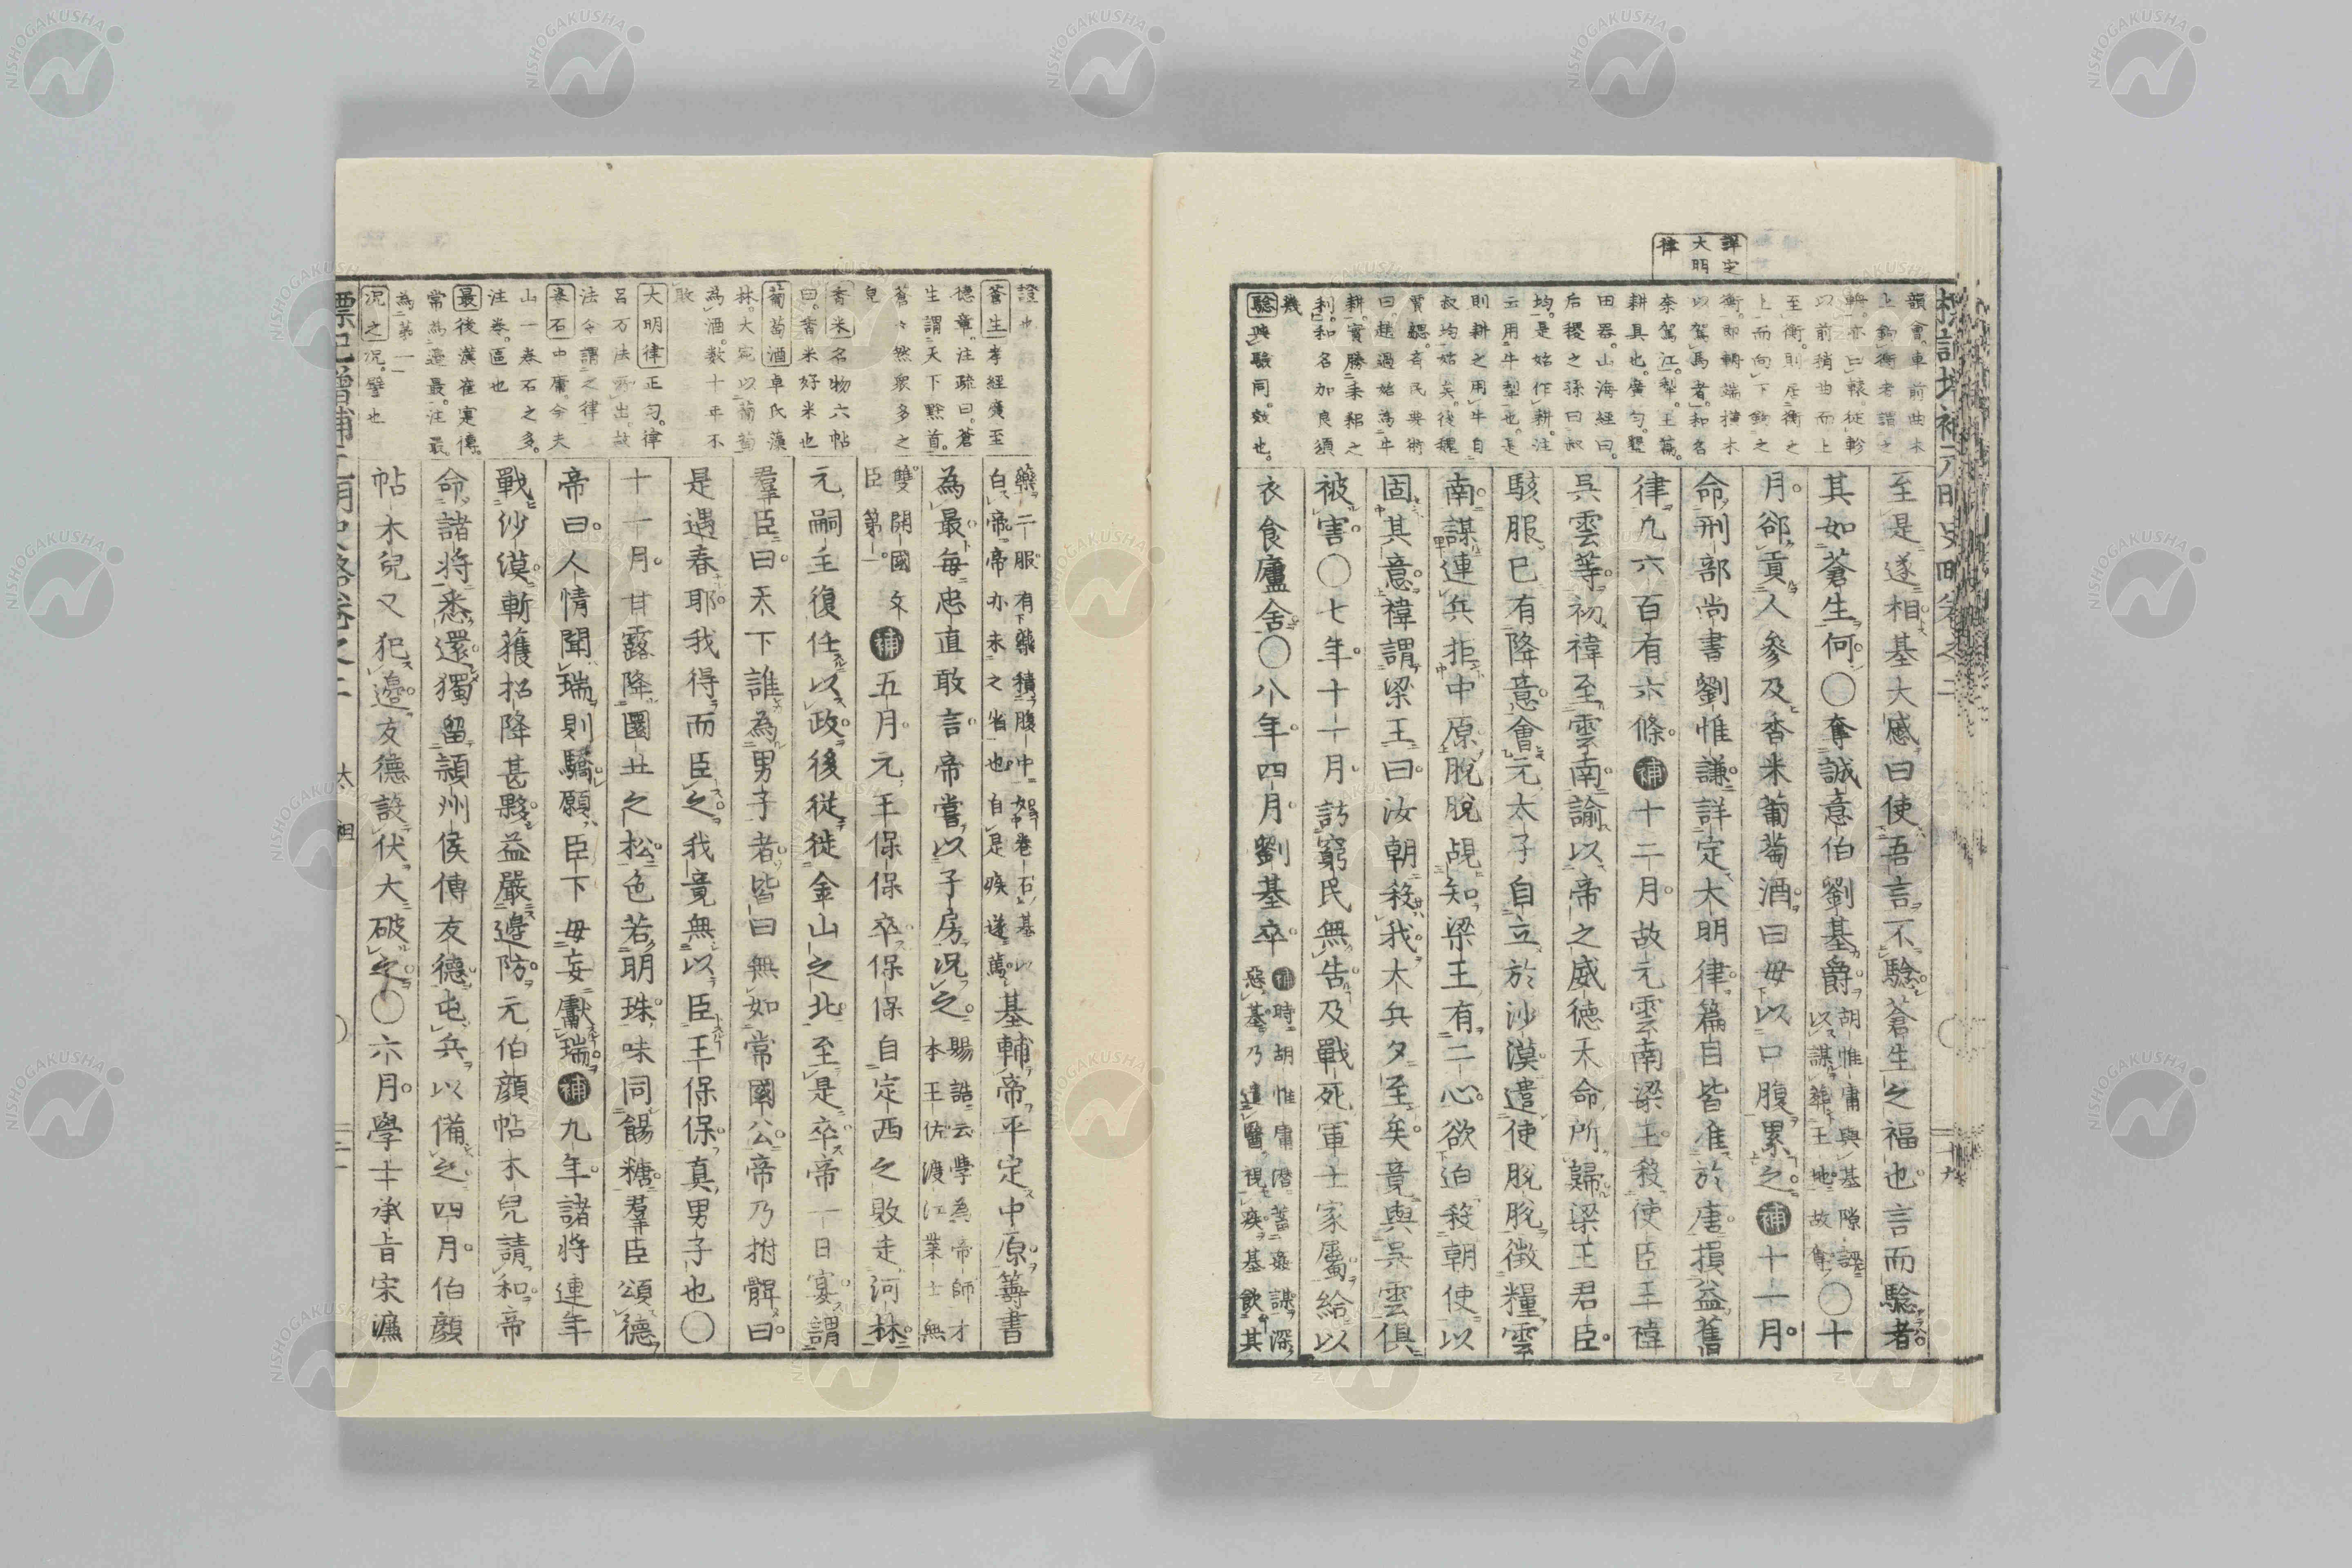 詳定
大明
律
韻會。車前曲木
上鉤衡者謂之
輈。亦曰轅。從軫
以前稍曲而上
至衡。則居衡之
上而向下鉤之
衡。即輈端橫木
以駕馬者。和名
耕具也。廣勻。墾
田器。山海經曰。
后稷之孫曰叔
均。是始作耕。注
云用牛犁也。是
則耕之用牛自
叔均始矣。後魏
賈勰。齊民要術
曰。趙過始為牛
耕。實勝耒耜之
利。和名加良須
幾
驗與驗同。效也。
至是遂相基大慼曰使吾言不驗蒼生之福也言而驗者
其如蒼生何〇奪誠意伯劉基爵
胡惟庸與基隙譖
以謀葬王地故奪
〇十
月。卻貢人參及香米葡萄酒曰毋以口腹累之補十一月。
命刑部尚書劉惟謙詳定大明律篇目皆准於唐損益舊
律凡六百有六條補十二月故元雲南梁王殺使臣王禕
吳雲等初禕至雲南諭以帝之威德天命所歸梁王君臣
駭服已有降意會元太子自立於沙漠遣使脫脫徵糧雲
南謀連兵拒中原脫脫覘知梁王有二心欲迫殺朝使以
固其意禕謂梁王曰汝朝殺我大兵夕至矣竟與吳雲俱
被害〇七年十一月訪窮民無告及戰死軍士家屬給以
衣食廬舍〇八年四月劉基卒
補時胡惟庸潛蓄姦謀深
惡基乃遣醫視疾基飲其
證也
蒼生孝經廣至
德章。注疏曰。蒼
生謂天下黔首。
蒼々然衆多之
皃
香米名物六帖
曰。香米好米也
葡萄酒卓氏藻
林。大宛以葡萄
為酒。數十年不
敗
大明律正勻。律
呂万法所出。故
法令謂之律
拳石中庸。今夫
山一拳石之多。
注拳。區也
最後漢崔寔傳。
常為邊最。注最。
為第一
况之况。譬也
藥二服有藥積腹中如拳石基以
白帝帝亦未之省也自是疾遂篤
基輔帝平定中原籌書
為最每忠直敢言帝嘗以子房况之
賜誥云學為帝師才
本王佐渡江業士無
雙開國文
臣第一
補五月元王保保卒保保自定西之敗走河林
元嗣主復任以政後從徙金山之北至是卒帝一日宴謂
羣臣曰天下誰為男子者皆曰無如常國公帝乃拊髀曰
是遇春耶我得而臣之我竟無以臣王保保真男子也〇
十一月甘露降圜丘之松色若明珠味同餳糖羣臣頌德
帝曰人情聞瑞則驕願臣下毋妄獻瑞補九年諸將連年
戰沙漠斬獲招降甚夥益嚴邊防元伯顏帖木兒請和帝
命諸將悉還獨留潁州侯傅友德屯兵以備之四月伯顏
帖木兒又犯邊友德設伏大破之〇六月學士承旨宋濂